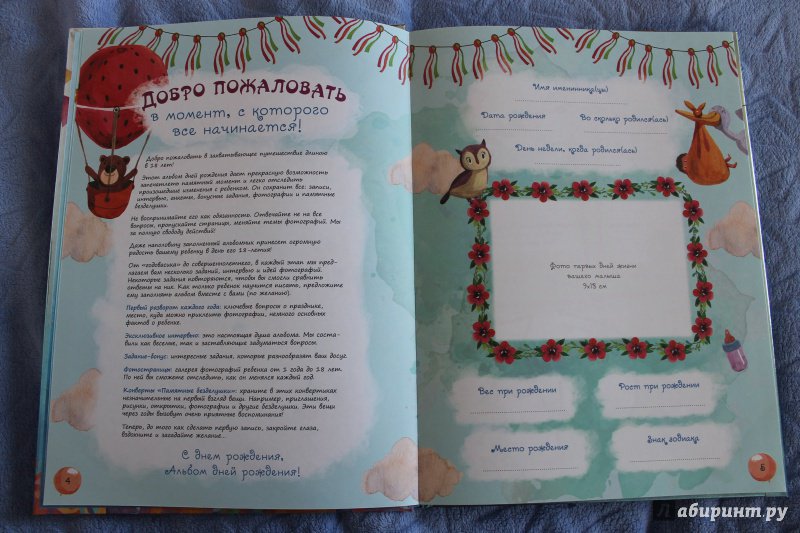 ДОБРО ПОЖАЛОВАТЬ
в момент, с которого
все начинается!
Добро пожаловать в захватывающее путешествие длиною
в 18 лет!
Этот альбом дней рождения дает прекрасную возможность
запечатлеть памятный момент и легко отследить
произошедшие изменения с ребенком. Он сохранит все: записи,
интервью, анкеты, бонусные задания, фотографии и памятные
безделушки.
Не воспринимайте его как обязанность. Отвечайте не на все
вопросы, пропускайте страницы, меняйте темы фотографий. Мы
за полную свободу действий!
Даже наполовину заполненный альбомчик принесет огромную
радость вашему ребенку в день его 18-летия!
От «годовасика» до совершеннолетнего, в каждый этап мы пред-
лагаем вам несколько заданий, интервью и идей фотографий.
Некоторые задания повторяются, чтобы вы смогли сравнить
ответы на них. Как только ребенок научится писать, предложите
ему заполнять альбом вместе с вами (по желанию).
Первый разворот каждого года: ключевые вопросы о празднике,
место, куда можно приклеить фотографии, немного основных
фактов о ребенке.
Эксклюзивное интервью: это настоящая душа альбома. Мы соста-
вили как веселые, так и заставляющие задуматься вопросы.
Задание-бонус: интересные задания, которые разнообразят ваш досуг.
Фотостраницы: галерея фотографий ребенка от 1 года до 18 лет.
По ней вы сможете отследить, как он менялся каждый год.
Конверты «Памятные безделушки»: храните в этих конвертиках
незначительные на первый взгляд вещи. Например, приглашения,
рисунки, открытки, фотографии и другие безделушки. Эти вещи
через годы вызовут очень приятные воспоминания!
Теперь, до того как сделать первую запись, закройте глаза,
вздохните и загадайте желание...
С днем рождения,
Альбом дней рождения!
4
Имя именинника(цы)
Дата рождения Во сколько родился(ась)
День недели, когда родился(ась)
Фото первых дней жизни
вашего малыша
9х13 см
Вес при рождении Рост при рождении
Место рождения Знак зодиака
5
Лабиринт.ру